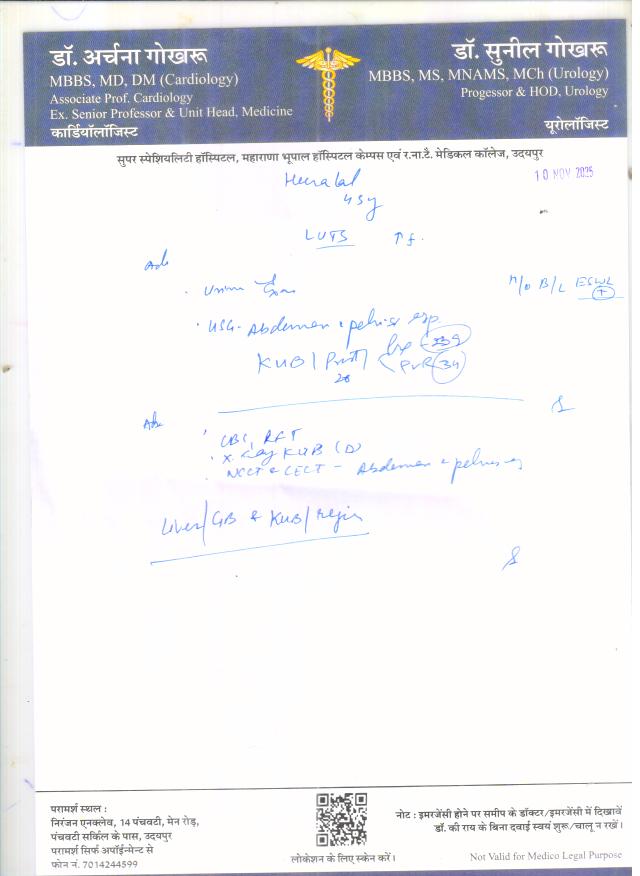 डॉ. अर्चना गोखरू
MBBS, MD, DM (Cardiology)
Associate Prof. Cardiology
Ex. Senior Professor & Unit Head, Medicine
कार्डियॉलॉजिस्ट
डॉ. सुनील गोखरू
MBBS, MS, MNAMS, MCh (Urology)
Progessor & HOD, Urology
यूरोलॉजिस्ट
सुपर स्पेशियलिटी हॉस्पिटल, महाराणा भूपाल हॉस्पिटल केम्पस एवं र.ना.टै. मेडिकल कॉलेज, उदयपुर
10 NOV 2025
Heeralal
45y
LUTS ↑f.
Adv
H/O B/L ESWL
+
Urine
USG- Abdomen & pelvis esp.
KUB/Prost/ Pre-339
PVR 34
Adv
CBC, RFT
X-Ray KUB (D)
NCCT & CECT - Abdomen & pelvis
Liver/GB & KUB/region
परामर्श स्थल :
निरंजन एनक्लेव, 14 पंचवटी, मेन रोड़,
पंचवटी सर्किल के पास, उदयपुर
परामर्श सिर्फ अपॉईन्मेन्ट से
फोन नं. 7014244599
लोकेशन के लिए स्केन करें।
नोट : इमरजेंसी होने पर समीप के डॉक्टर/इमरजेंसी में दिखावें
डॉ. की राय के बिना दवाई स्वयं शुरू/चालू न रखें।
Not Valid for Medico Legal Purpose